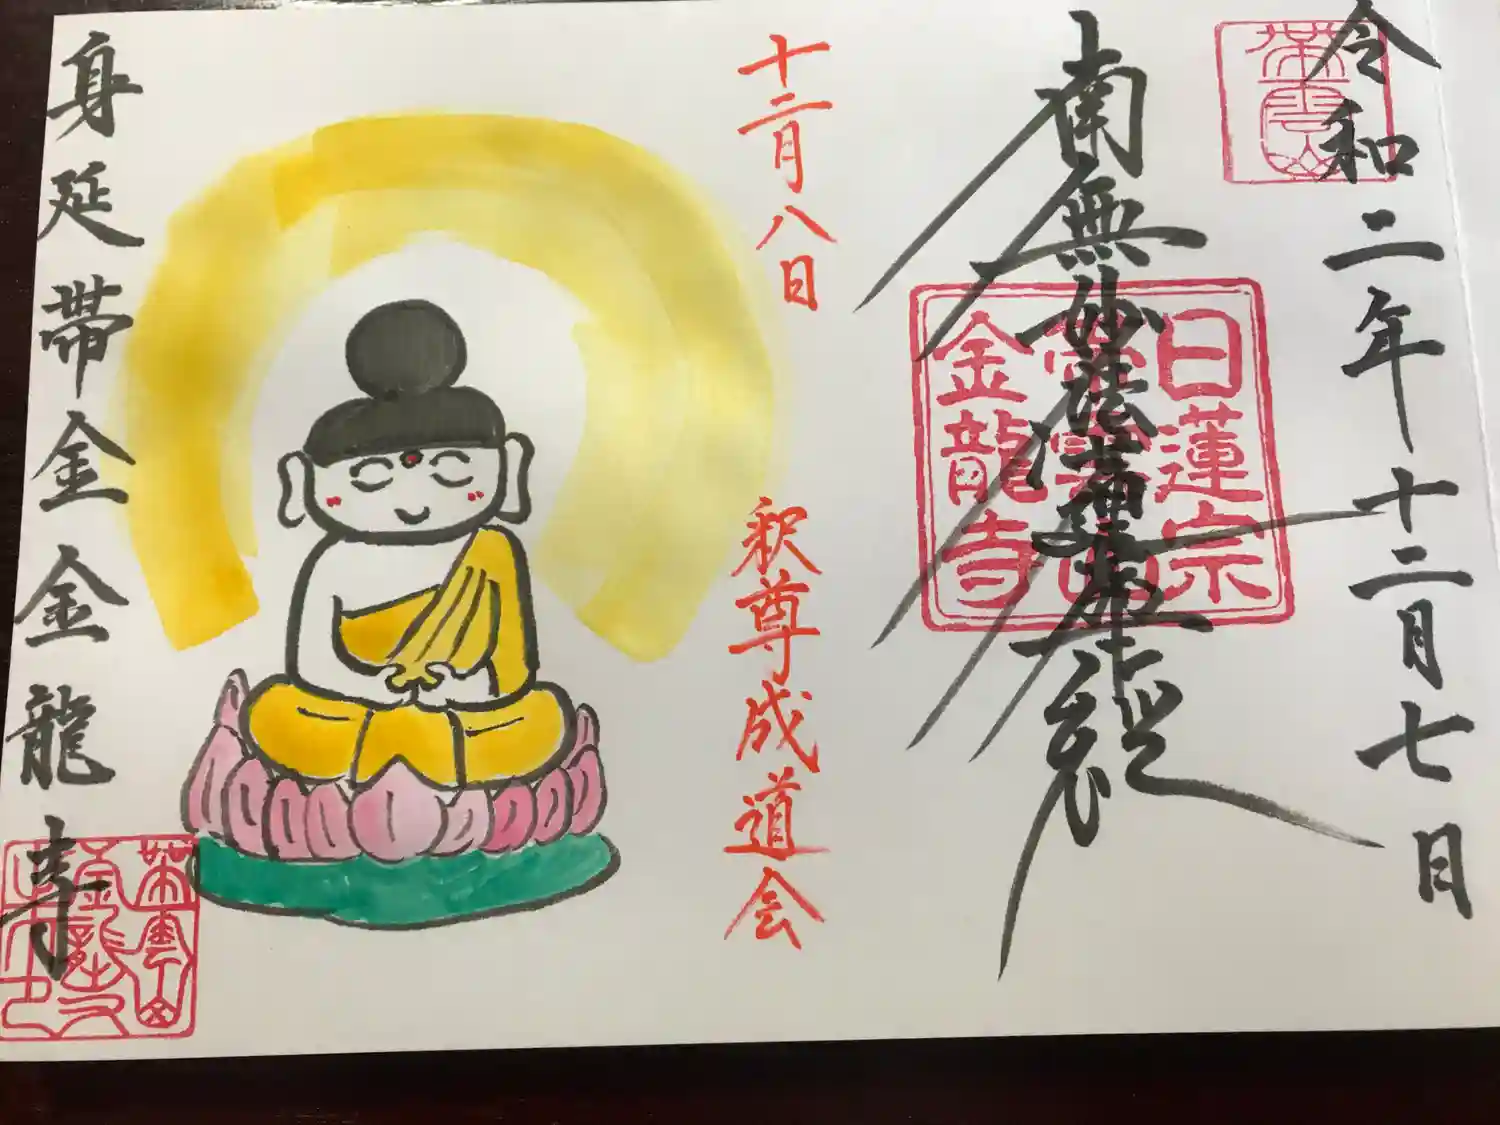 令和二年十二月七日
南無妙法蓮華経
日蓮宗
金龍寺
十二月八日
釈尊成道会
身延帯金金龍寺